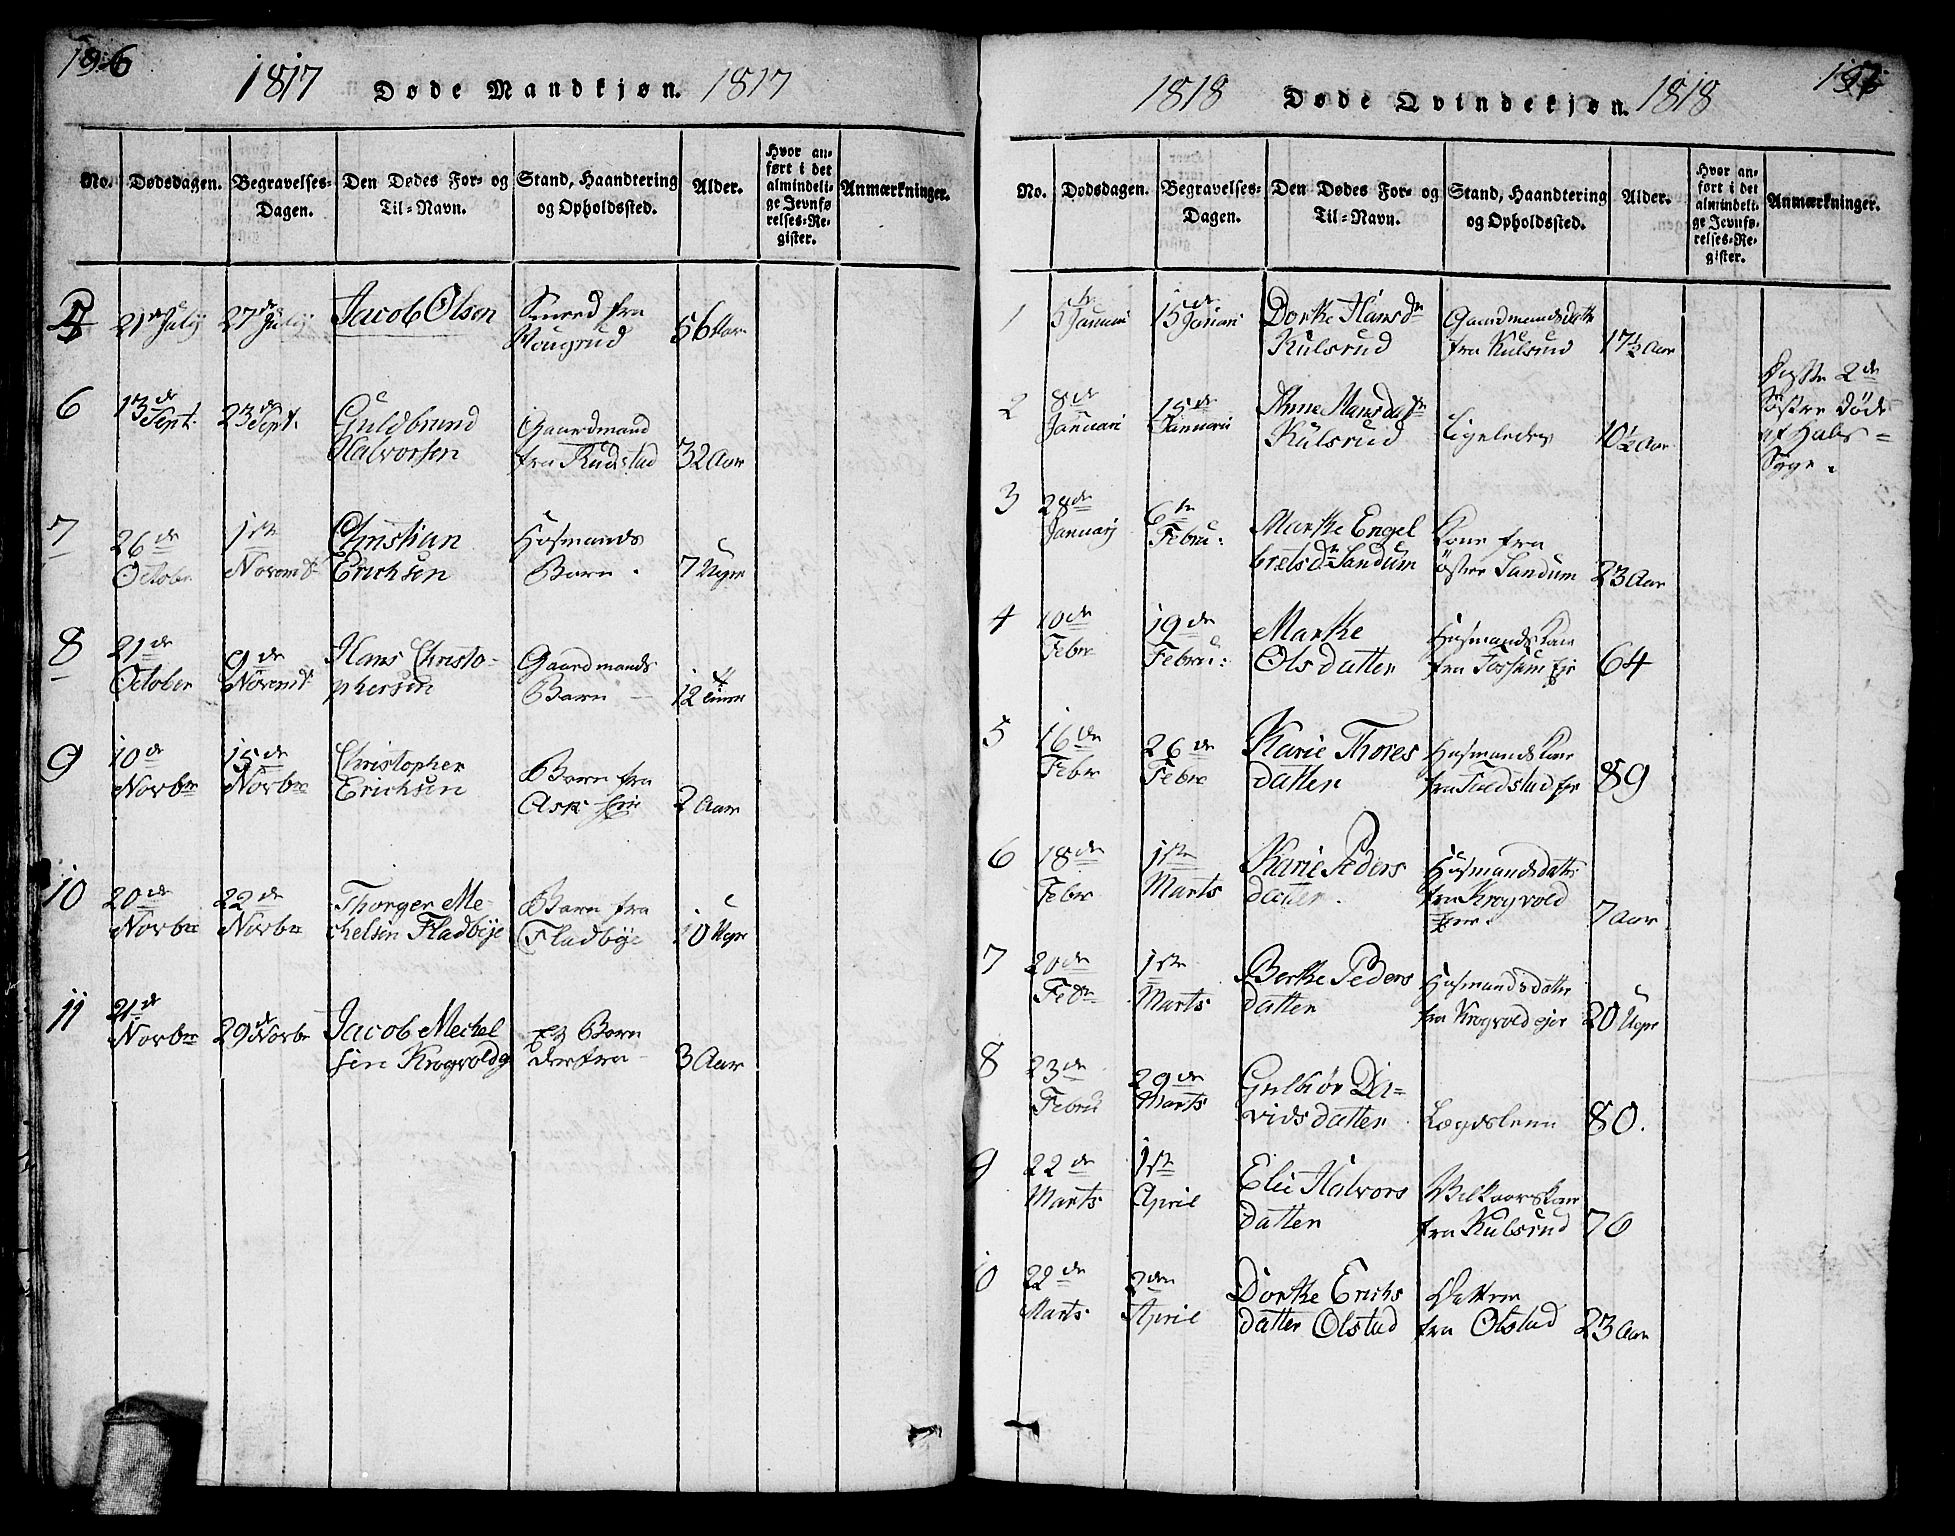 196
1817 Døde Mandkjøn. 1817
No. Dødsdagen. Begravelses-Dagen. Den Dødes For- og Til-Navn. Stand, Haandtering og Opholdssted. Alder. Hvor anført i det almindelige Jevnførelses-Register. Anmærkninger.
5 21de Julij 27de Julij Jacob Olsen Smed fra
Hougrud 56 Aar
6 13de Sept. 23de Sept. Guldbrand
Halvorsen Gaardmand
fra Rudstad 32 Aar
7 26de
October 1ste
Novemb Christian
Erichsen Husmands
Barn. 7 Uger
8 21de
October 9de
Novemb Hans Christo-
phersen Gaardmands
Barn 12 Timer
9 10de
Novbr 15de
Novbr Christopher
Erichsen Barn fra
Ask Eie 2 Aar
10 20de
Novbr 22de
Novbr Thorger Me-
chelsen Fladbye Barn fra
Fladbye 10 Uger
11 21de
Novbr 29de Novbr Jacob Mechel
sen Krogvold Barn
derfra 3 Aar
197
1818 Døde Qvindekjøn. 1818
No. Dødsdagen. Begravelses-Dagen. Den Dødes For- og Til-Navn. Stand, Haandtering og Opholdssted. Alder. Hvor anført i det almindelige Jevnførelses-Register. Anmærkninger.
1 5te Januari 15de Januari Dorthe Hansdr
Kulsrud Gaardmandsdatter
fra Kulsrud 17½ Aar
2 8de
Januari 15de
Januari Anne Hansdatr
Kulsrud Ligeledes 10½ Aar
Disse 2de
Søstre døde
af Hals=
Syge.
3 28de
Januarj 6te
Febru: Marthe Engel
bretsdr Sandum Kone fra
østre Sandum 23 Aar
4 10de
Febr 19de
Febru: Marthe
Olsdatter Husmandskone
fra Fossum Eje 64
5 16de
Febr 26de
Febr Karie Thores
datter Husmandskone
fra Fladstad Eje 89
6 18de
Febr 1ste
Marts Karie Peders
datter. Husmandsdatter
fra Krogvold
Eje. 7 Aar
7 20de
Febr 1ste
Marts Berthe Peders
datter Husmandsdatter
fra Krogvold eje 20 Uger
8 23de
Febru 29de
Marts Gulbiør Da=
vidsdatter Lægdslem 80.
9 22de
Marts 1ste
April Elie Halvors
datter Vilkaarskone
fra Kulsrud 76
10 22de
Marts 2den
April Dorthe Erichs
datter Olstad Datter
fra Olstad 23 Aar